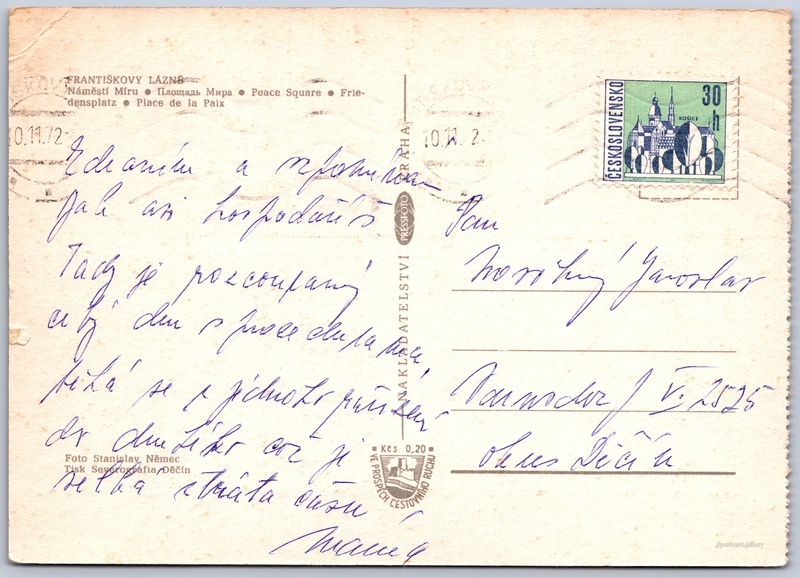 FRANTIŠKOVY LÁZNĚ
Náměstí Míru • Площадь Мира • Peace Square • Frie-
densplatz • Place de la Paix
10.11.72
10.11. 2
ČESKOSLOVENSKO
30 h
KOŠICE
Zdravím a vzpomínám
jak asi hospodaříš.
Tady je rozcoupaný
celý den s procedurama
běhá se z jednoho
do druhého což je
velká ztráta času
NAKLADATELSTVÍ PRESSFOTO PRAHA
Pan
Novotný Jaroslav
Varnsdorf V. 2525
okres Děčín
Foto Stanislav Němec
Tisk Severografia Děčín
Kčs 0,20
VE PROSPĚCH CESTOVNÍHO RUCHU